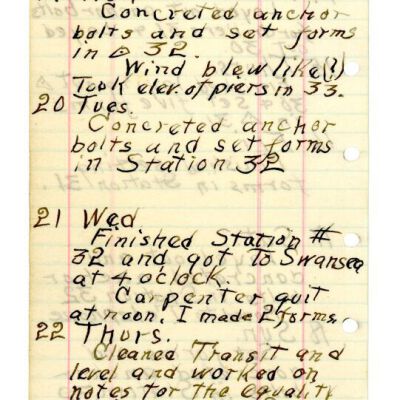 Concreted anchor
bolts and set forms
in △ 32.
Wind blew like (!)
Took elev. of piers in 33.
20 Tues.
Concreted anchor
bolts and set forms
in Station 32
21 Wed
Finished Station #
32 and got to Swansea
at 4 o'clock.
Carpenter quit
at noon. I made 2 forms.
22 Thurs.
Cleaned Transit and
level and worked on
notes for the equality